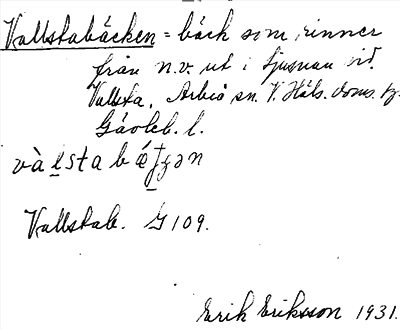 Vallstabäcken = bäck som rinner
från n.v. ut i Ljusnan vid.
Vallsta, Arbrå sn. V. Häls. doms.
Gävleb. l.
Vallstab. G 109.
Erik Eriksson 1931.